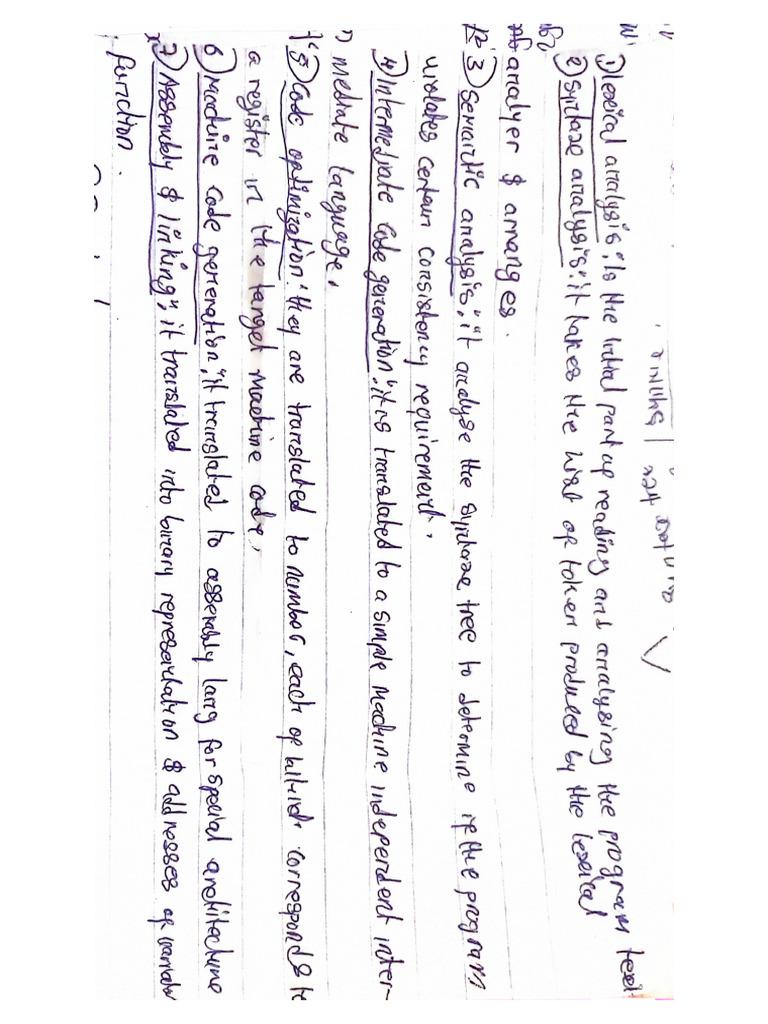 1) lexical analysis: Is the initial part of reading and analysing the program text
2) Syntax analysis: it takes the list of token produced by the lexical
analyer & arranges.
3) Semantic analysis: it analyse the syntax tree to determine if the program
violates certain consistency requirement.
4) Intermediate code generation: it is translated to a simple machine independent inter-
mediate language.
5) Code optimization: they are translated to number, each of which corresponds to
a register in the target machine code.
6) Machine code generation: it translated to assembly lang for special architecture
7) Assembly & linking: it translated into binary representation & addresses of variable
function.